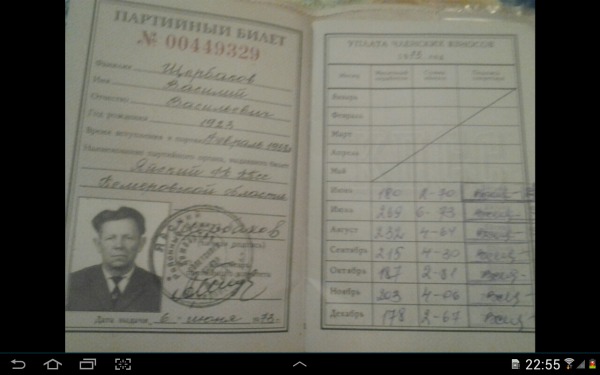 ПАРТИЙНЫЙ БИЛЕТ
№ 00449329
Фамилия Щербаков
Имя Василий
Отчество Васильевич
Год рождения 1923
Время вступления в партию Февраль
Наименование партийного органа, выдавшего билет
Яйский РК КПСС
Кемеровской области
Дата выдачи 6 июня 1973 г.
УПЛАТА ЧЛЕНСКИХ ВЗНОСОВ
1973 год
Месяц Месячный заработок Сумма взноса Подпись секретаря
Январь
Февраль
Март
Апрель
Май
Июнь 180 2-70
Июль 6-93
Август 232 4-64
Сентябрь 215 4-30
Октябрь 187 2-81
Ноябрь 203 4-06
Декабрь 178 2-67
22:55